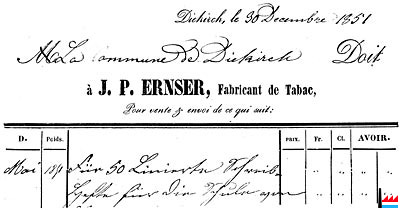 Diekirch, le 30 Decembre 1851
M La Commune de Diekirch Doit
à J. P. ERNSER, Fabricant de Tabac,
Pour vente & envoi de ce qui suit:
D. Poids. PAIX. Fr. Ct. AVOIR.
Mai 1851 Für 50 Linierte Schreib-
hefte für die Schule von